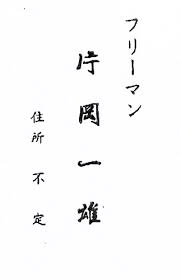 フリーマン
片岡一雄
住所不定